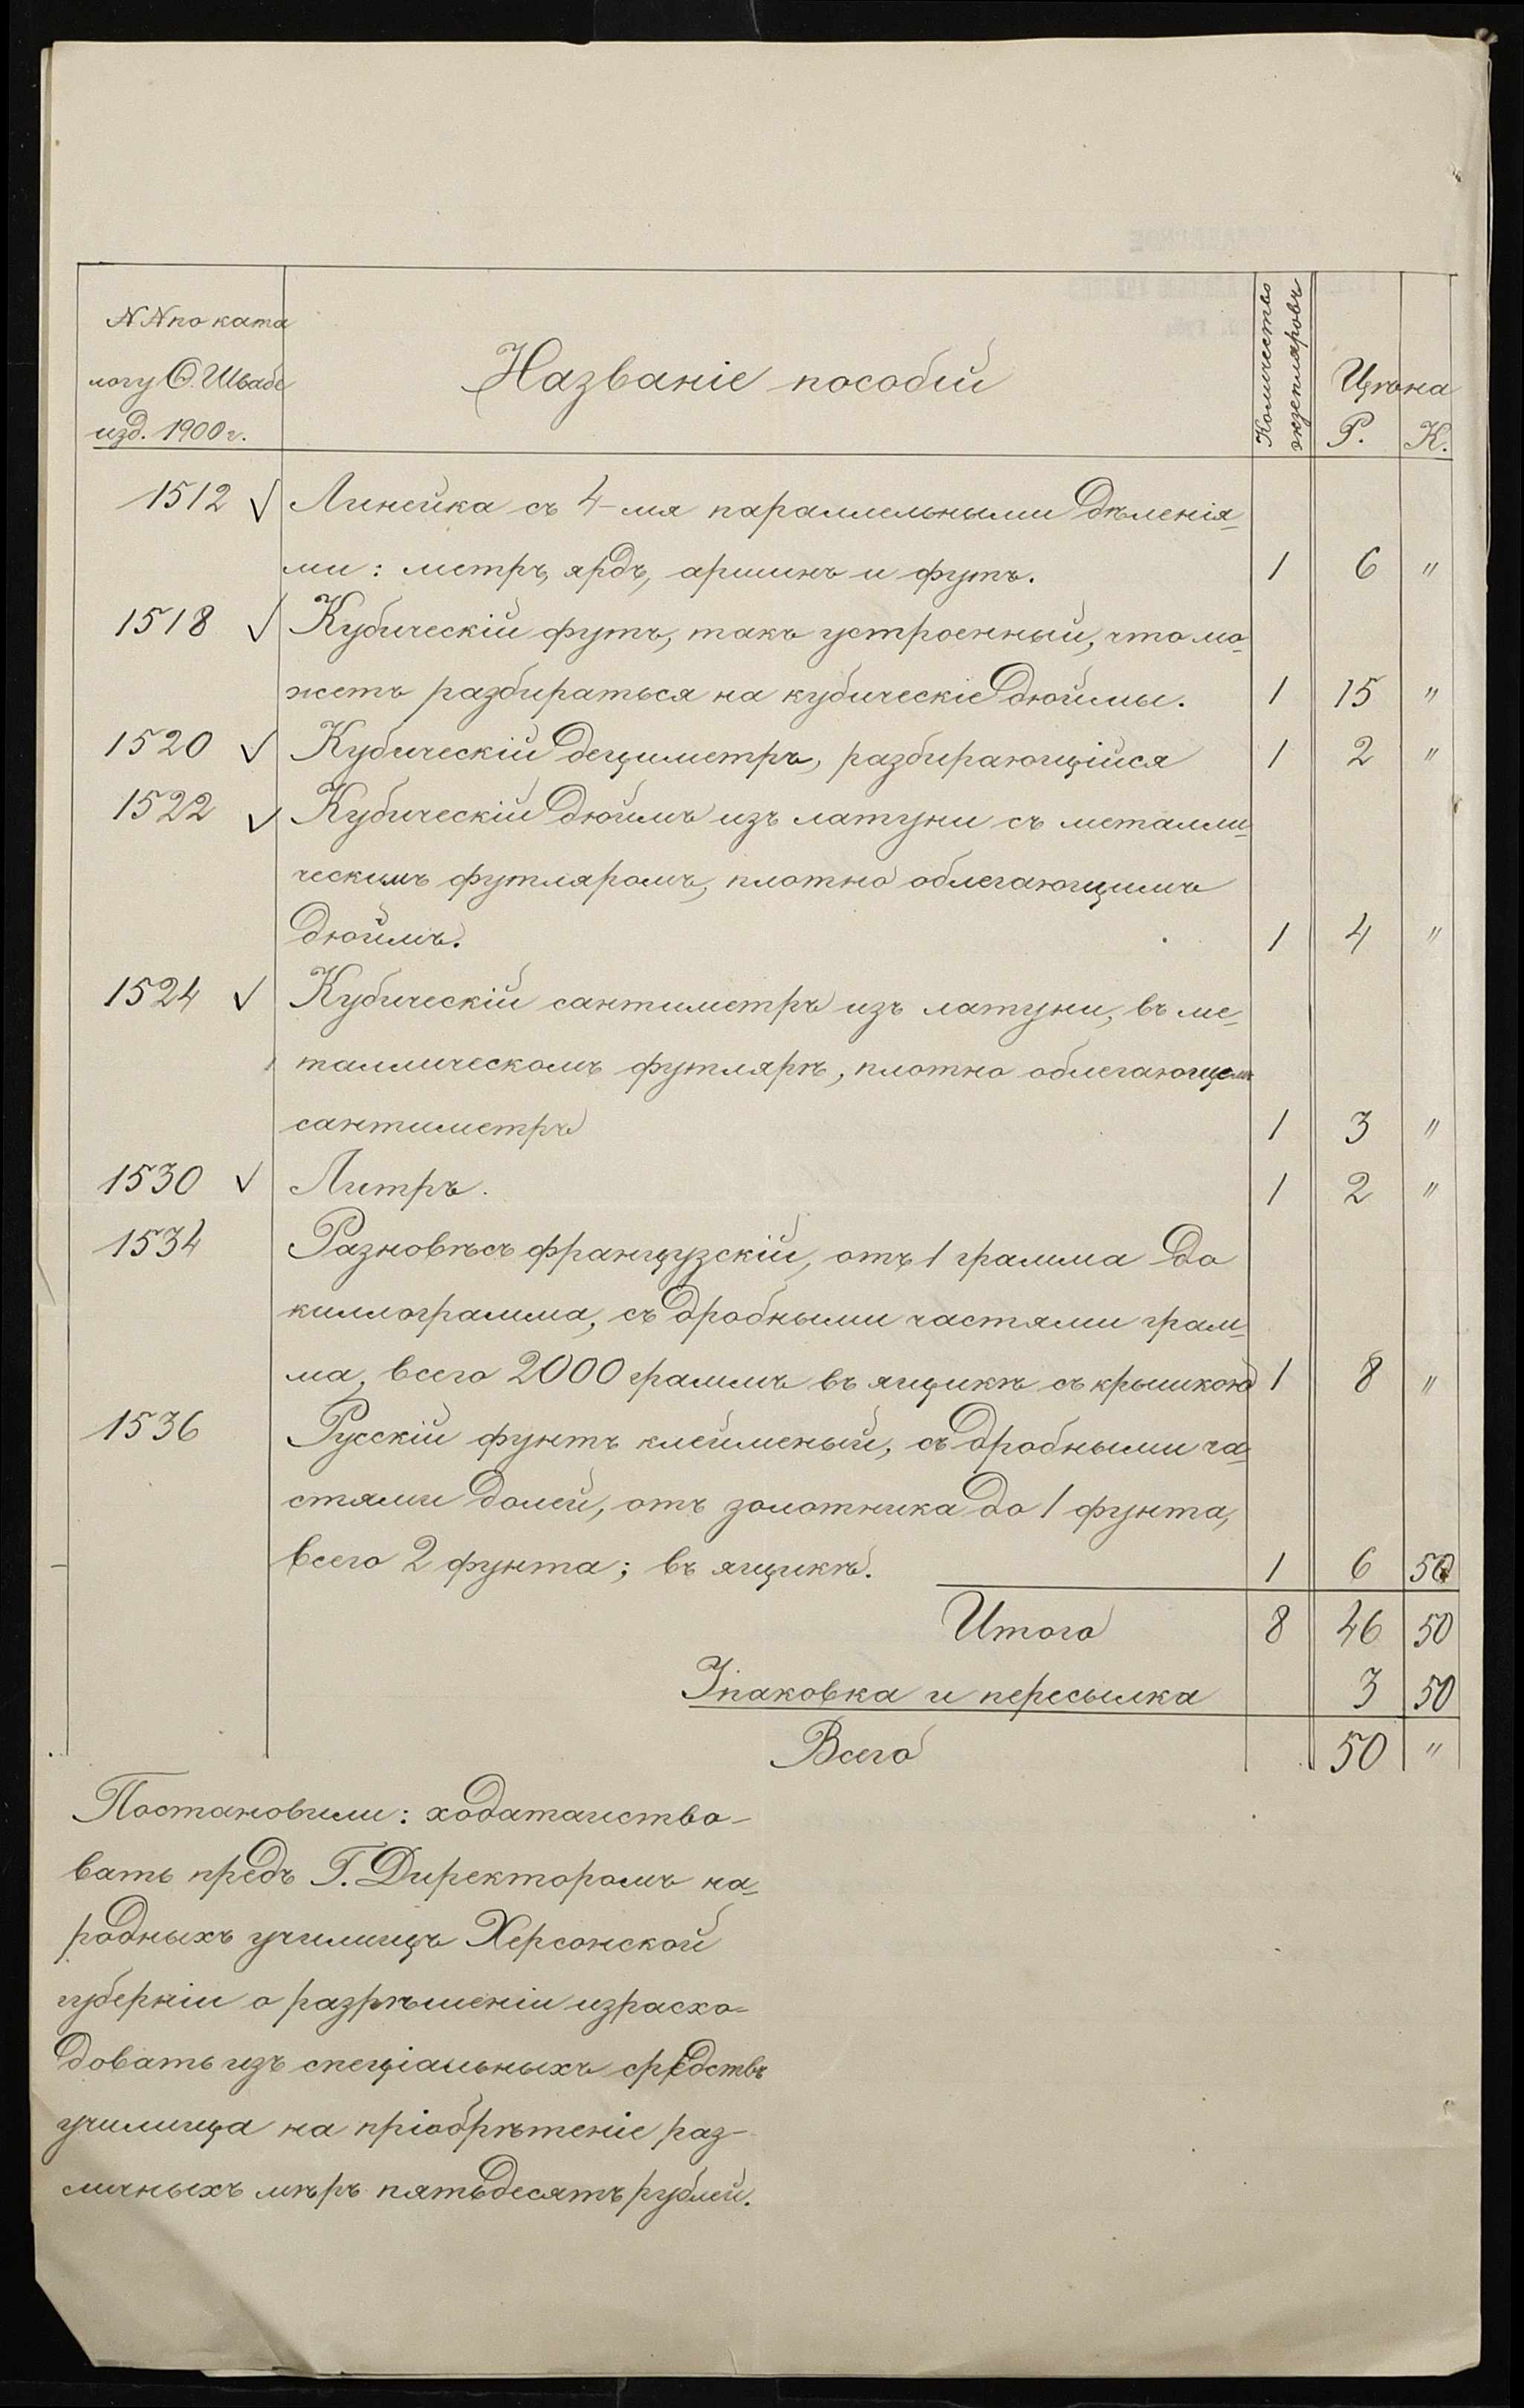 NN по ката
логу Ѳ. Швабе
изд. 1900 г.
Названіе пособій
Количество
экземпляровъ
Цѣна
Р. К.
1512 ✓ Линейка съ 4-мя параллельными дѣленія-
ми: метръ, ярдъ, аршинъ и футъ. 1 6 "
1518 ✓ Кубическій футъ, такъ устроенный, что мо-
жетъ разбираться на кубическіе дюймы. 1 15 "
1520 ✓ Кубическій дециметръ, разбирающійся 1 2 "
1522 ✓ Кубическій дюймъ изъ латуни съ металли-
ческимъ футляромъ, плотно облегающимъ
дюймъ. 1 4 "
1524 ✓ Кубическій сантиметръ изъ латуни, въ ме-
таллическомъ футлярѣ, плотно облегающемъ
сантиметръ 1 3 "
1530 ✓ Литръ. 1 2 "
1534 Разновѣсъ французскій, отъ 1 грамма до
киллограмма, съ дробными частями грам-
ма, всего 2000 граммъ въ ящикѣ съ крышкою 1 8 "
1536 Русскій фунтъ клейменый, съ дробными ча-
стями долей, отъ золотника до 1 фунта,
всего 2 фунта; въ ящикѣ. 1 6 50
Итого 8 46 50
Упаковка и пересылка 3 50
Всего 50 "
Постановили: ходатайство-
вать предъ Г. Директоромъ на-
родныхъ училищъ Херсонской
губерніи о разрѣшеніи израсхо-
довать изъ спеціальныхъ средствъ
училища на пріобрѣтеніе раз-
личныхъ мѣръ пятьдесятъ рублей.